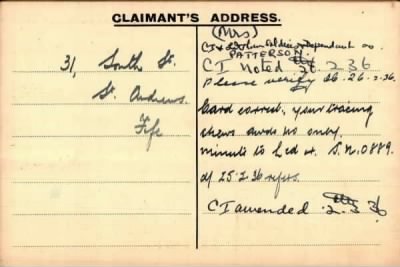 CLAIMANT'S ADDRESS.
31, South St.
St. Andrews.
Fife
(Mrs)
dependant as
PATTERSON.
CI Noted 2 36
Please verify 26.2.36.
Card correct, your tracing
shews awds no entry.
minute to S.N.0889.
of 25.2.36 refers.
CI amended .2.3 36